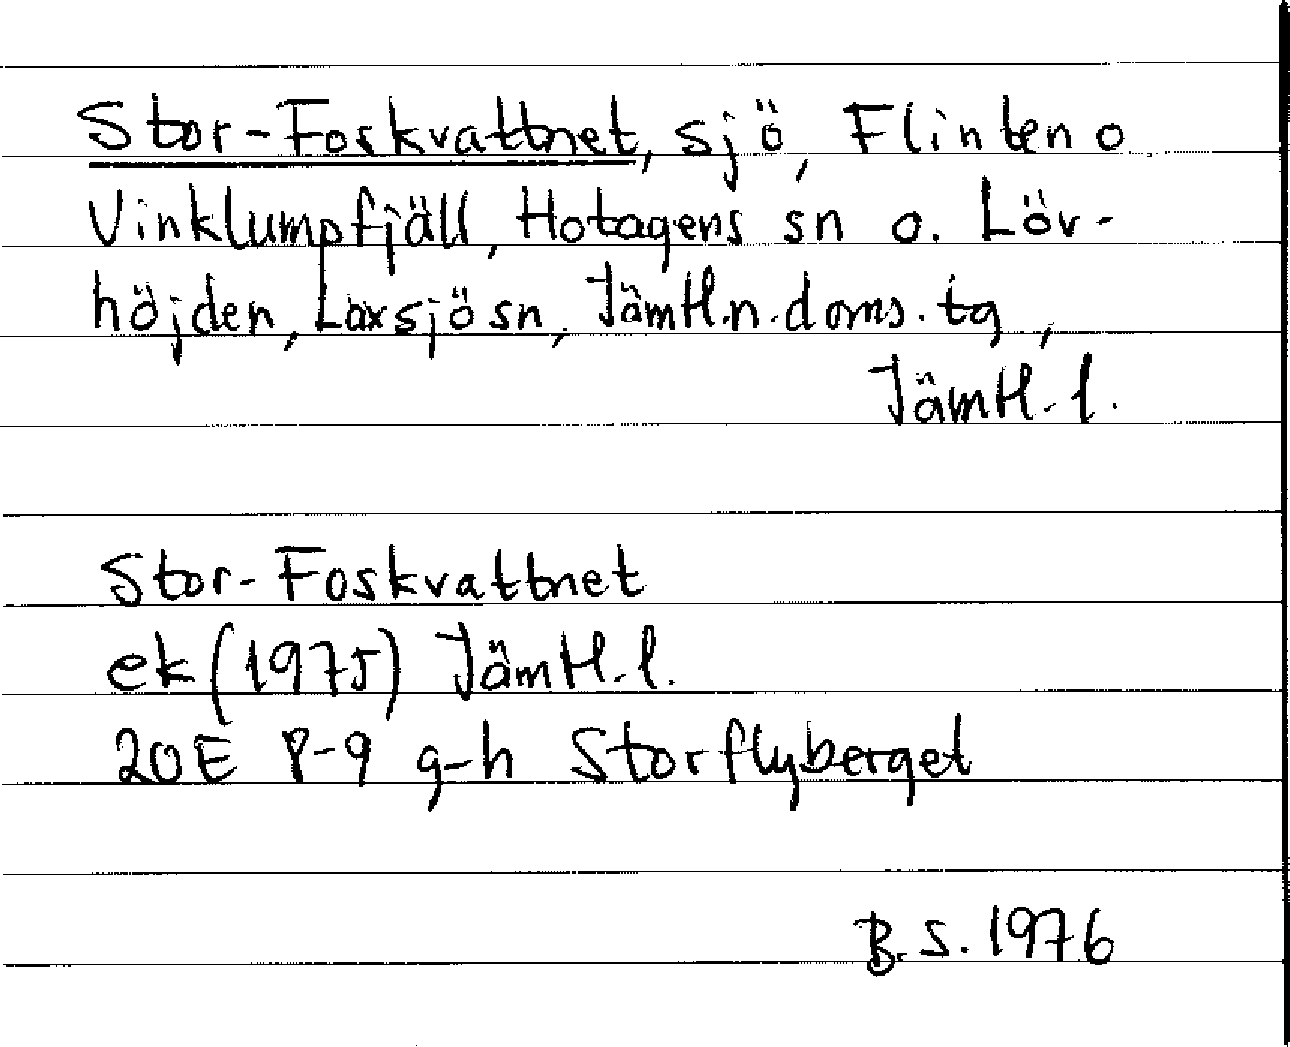 Stor-Foskvattnet, sjö, Flinten o
Vinklumpfjäll, Hotagens sn o. Löv-
höjden, Laxsjö sn, Jämtl.n.doms.tg,
Jämtl.l.
Stor-Foskvattnet
ek (1975) Jämtl.l.
20E 8-9 g-h Storflyberget
B.S. 1976